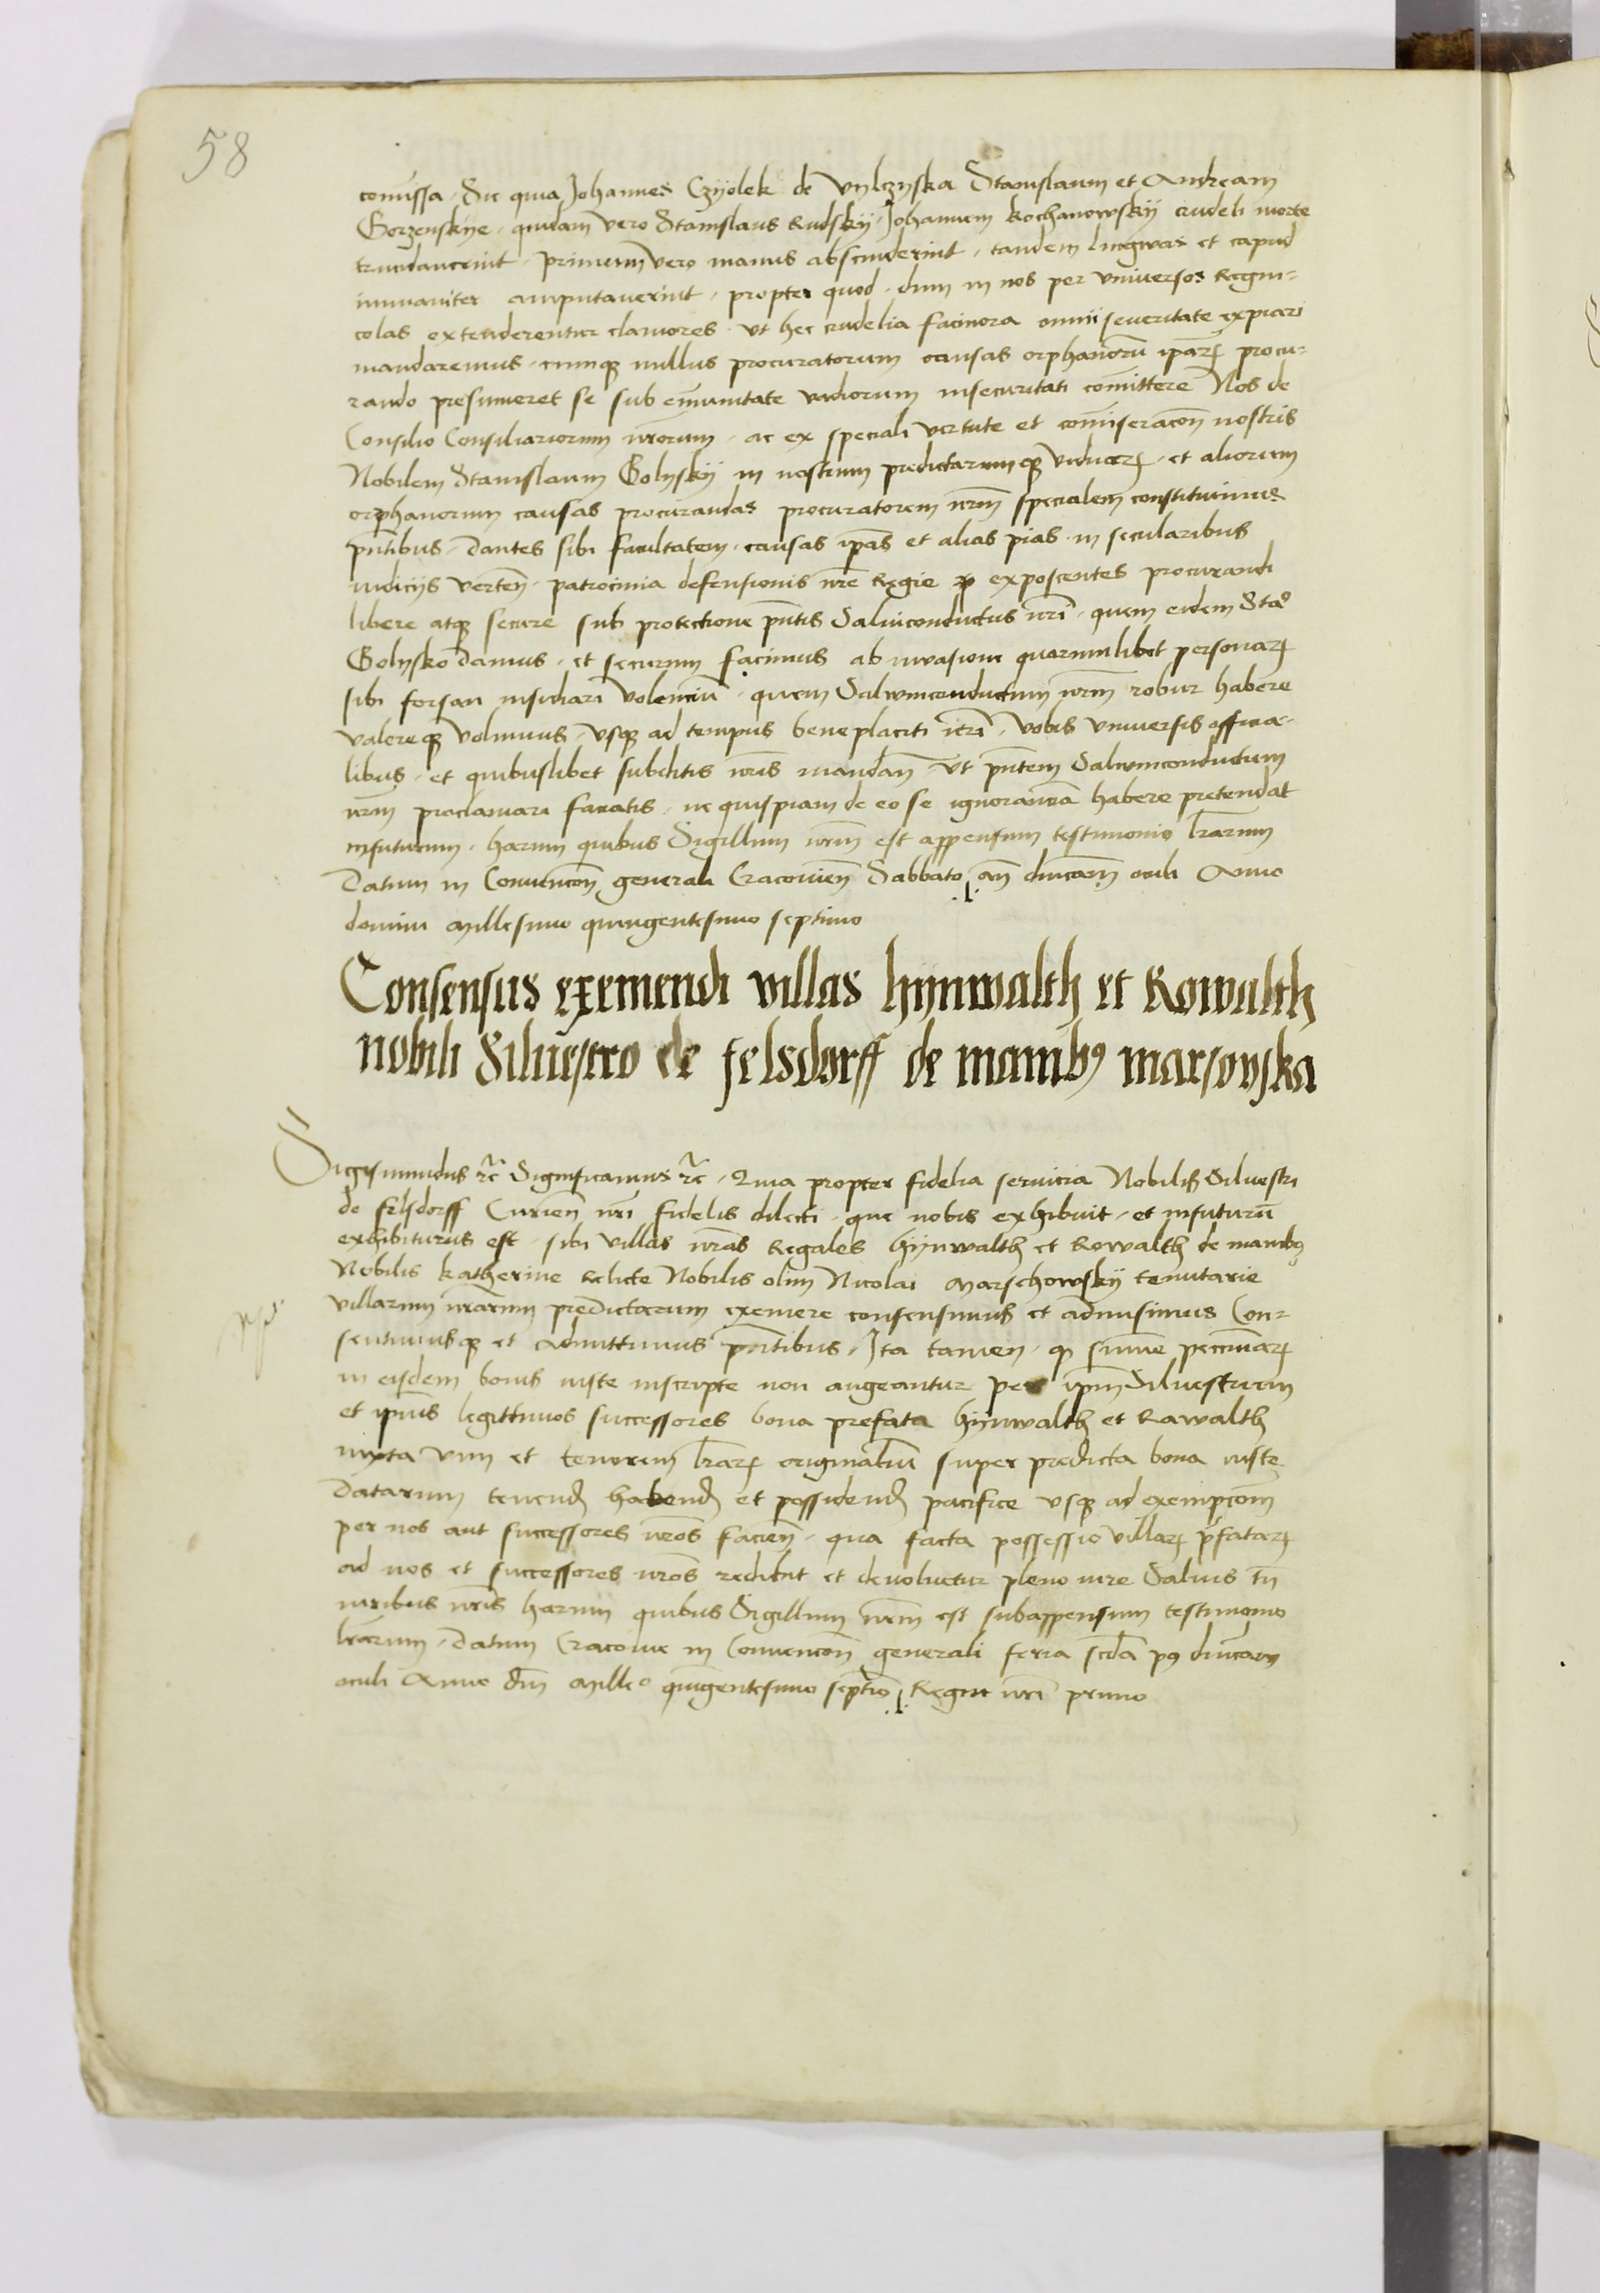 58
comissa. Sic quia Johannes Czyolek de Vylczyska Stanislaum et Andream
Gorzenskye. quidam vero Stanislaus Rudsky. Johannem Kochanowsky crudeli morte
trucidauerint. primum vero manus absciuderint. tandem lingwas et capud
inmaniter amputauerint. propter quod. dum in nos per vniuersos Regni-
colas extenderentur clamores. vt hec crudelia facinora omni seueritate expiari
mandaremus. cumq3 nullus procuratorum causas orphanorū ipar procu-
rando presumeret se sub emunitate vadiorum insecuritati comittere Nos de
Consilio Consiliariorum nrorum. ac ex speciali vertute et comiseracon nostris
Nobilem Stanislaum Golysky in nostrum predictarumq3 viduar. et aliorum
orphanorum causas procurandas procuratorem nrm specialem constituimus
pntibus. Dantes sibi facultatem. causas ipas et alias pias. in secularibus
iudicijs verten. patrocinia defensionis nre Regie exposcentes procurandi
libere atq3 secure sub protectione pntis Saluiconductus nri. quem eidem Sta°
Golysko damus. et securum facimus ab inuasione quorumlibet personar
sibi forsan insidiari volenciū. quem Saluumconductum nrm robur habere
valereq3 volumus. vsq3 ad tempus beneplaciti nri. vobis vniuersis officia-
libus. et quibuslibet subditis nris mandam vt pntem Saluumconductum
nrm proclamari faciatis. ne quispiam de eo se ignorancia habere pretendat
infuturum. harum quibus Sigillum nrm est appensum testimonio lrarum
Datum in Conuencon generali Cracovien Sabbato an dnicam oculi Anno
domini Millesimo quingentesimo septimo
Consensus exemendi villas hynwalth et Rowalth
nobili Siluestro de felsdorff de manib9 marsovska
Sigismundus rc Significamus rc. Quia propter fidelia seruicia Nobilis Siluestri
de felsdorff Curien nri fidelis dilecti. que nobis exhibuit. et infuturū
exhibiturus est. sibi villas nras Regales hynwalth et Rowalth de manib9
Nobilis Katherine Relicte Nobilis olim Nicolai Marschowsky tenutarie
villarum nrarum predictarum exemere consensimus et admisimus Con-
sentimusq3 et admittimus pntibus. Ita tamen. q summe pecuniar
in eisdem bonis iuste inscripte non augeantur per ipm Siluestrum
et ipius legittimos successores bona prefata hynwalth et Rawalth
iuxta vim et tenorem lrar originaliū super predicta bona iuste
Datarum tenend habend et possidend pacifice vsq3 ad exempcom
per nos aut successores nros facien. qua facta possessio villar pfatar
ad nos et successores nros redibit et deuoluetur pleno iure Saluis tn
iuribus nris harum quibus Sigillum nrm est subappensum testimonio
lrarum. Datum Cracouie in Conuencon generali feria scda p9 dnicam
oculi Anno dni Mille° quingentesimo septimo Regni nri primo